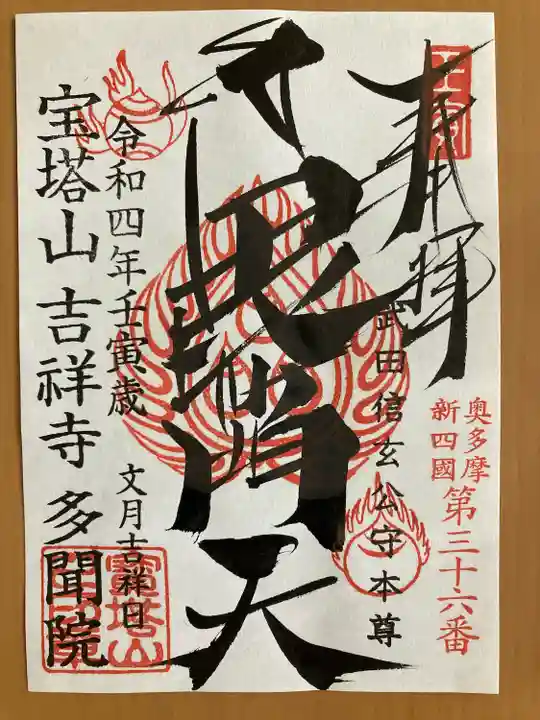 奉拝
壬寅
奥多摩
新四國
第三十六番
武田信玄公守本尊
毘沙門天
令和四年壬寅歳 文月吉祥日
宝塔山吉祥寺 多聞院
寶塔山